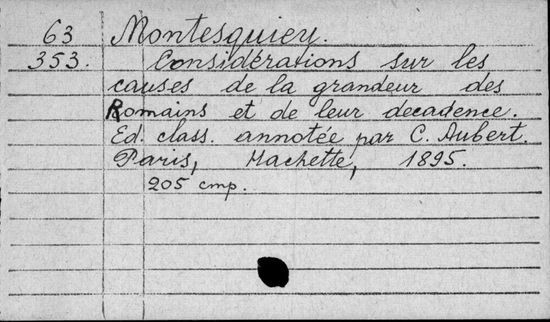 63 Montesquiey.
353. Considérations sur les
causes de la grandeur des
Romains et de leur decadence.
Ed. class. annotée par C. Aubert.
Paris, Hachette, 1895.
205 cmp.